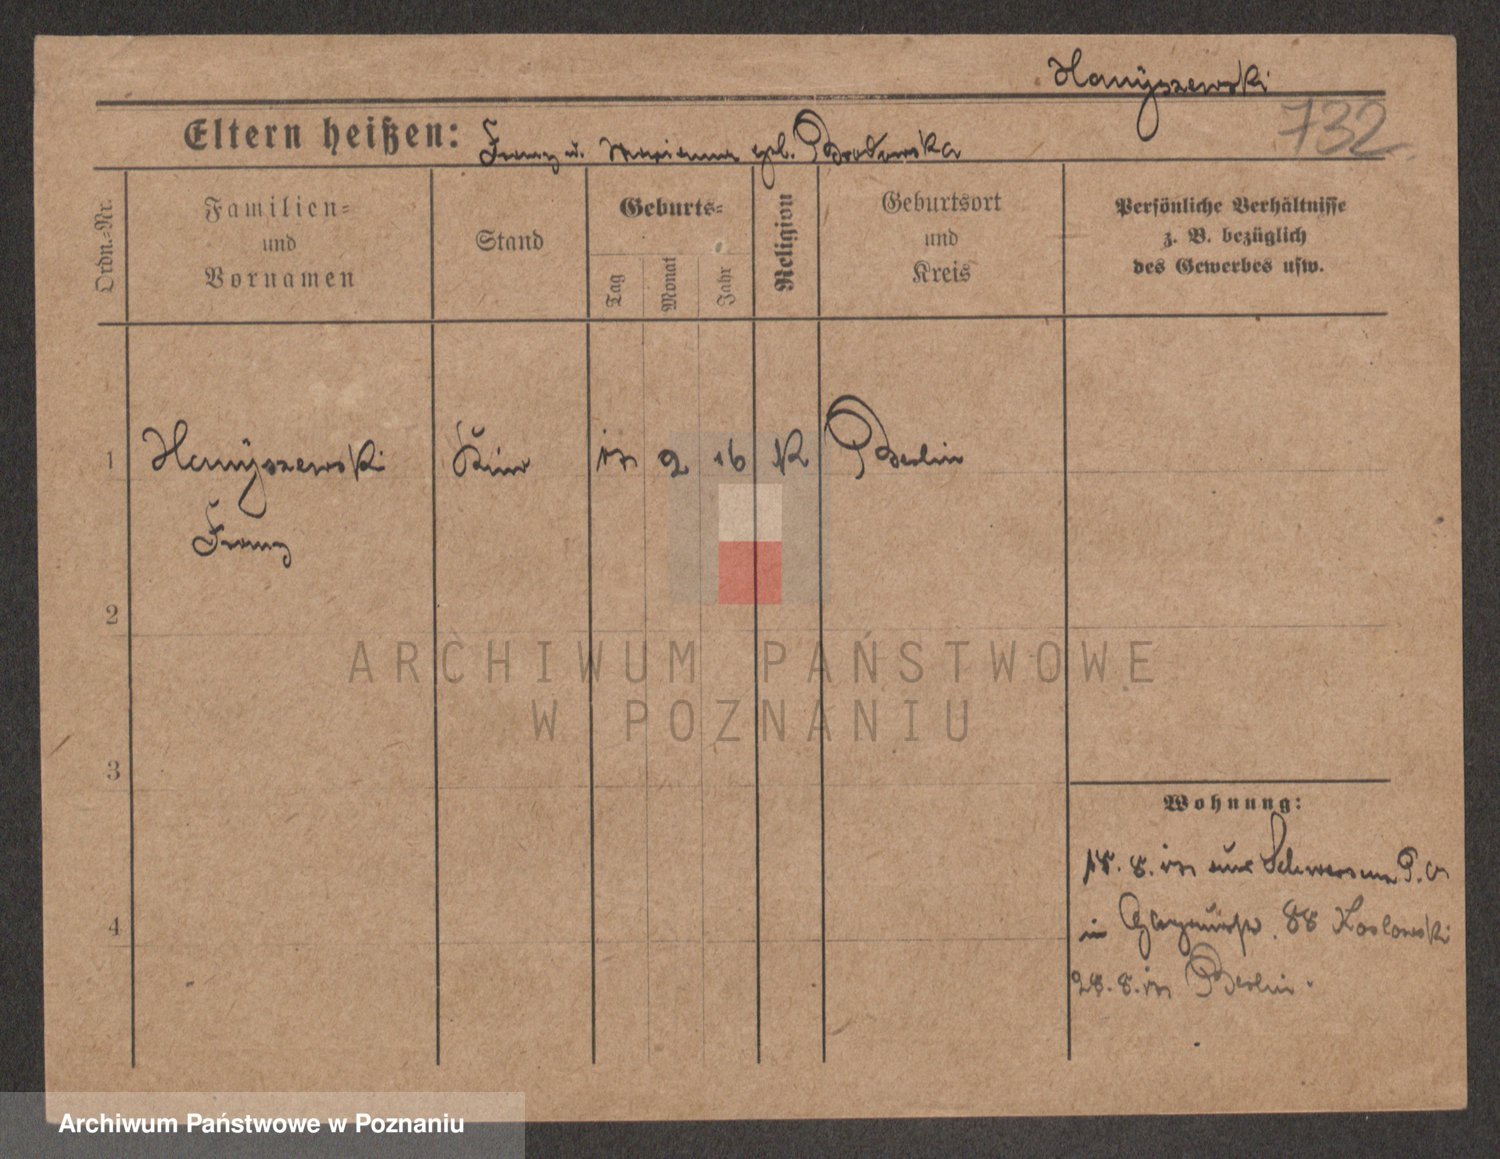 Hanÿszewski
732
Eltern heißen: Franz u. Marianna geb.
Ordn.=Nr.
Familien=
und
Vornamen
Stand
Geburts=
Tag
Monat
Jahr
Religion
Geburtsort
und
Kreis
Persönliche Verhältnisse
z. B. bezüglich
des Gewerbes usw.
1 Hanÿszewski 2 16 K Berlin
Franz
2
3
4
Wohnung:
aus Schwersenz
in 88 Koslowski
28. 8. Berlin.
ARCHIWUM PAŃSTWOWE
W POZNANIU
Archiwum Państwowe w Poznaniu